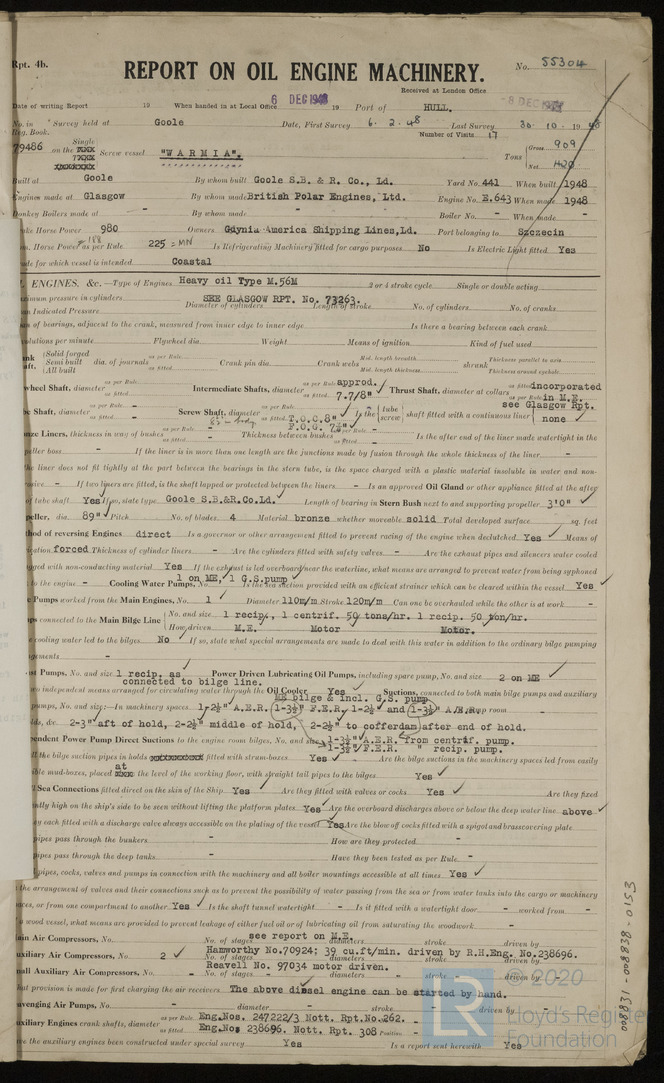 Rpt. 4b.
No. 55304
REPORT ON OIL ENGINE MACHINERY.
Received at London Office
Date of writing Report 19 When handed in at Local Office 6 DEC 1948 19 Port of HULL.
No. in Reg. Book. Survey held at Goole Date, First Survey 6. 2. 48 Last Survey 30. 10. 1948
Number of Visits 17
79486 on the Single Screw vessel "WARMIA". Tons Gross 909 Net 420
Built at Goole By whom built Goole S.B. & R. Co., Ld. Yard No. 441 When built 1948
Engines made at Glasgow By whom made British Polar Engines, Ltd. Engine No. E.643 When made 1948
Donkey Boilers made at - By whom made - Boiler No. - When made -
Horse Power 980 Owners Gdynia America Shipping Lines, Ld. Port belonging to Szczecin
Horse Power as per Rule 225 = MN Is Refrigerating Machinery fitted for cargo purposes No Is Electric Light fitted Yes
for which vessel is intended Coastal
ENGINES, &c. Type of Engines Heavy oil Type M.56M 2 or 4 stroke cycle Single or double acting
pressure in cylinders Diameter of cylinders Length of stroke No. of cylinders No. of cranks
SEE GLASGOW RPT. No. 73263.
Indicated Pressure
of bearings, adjacent to the crank, measured from inner edge to inner edge Is there a bearing between each crank
per minute Flywheel dia. Weight Means of ignition Kind of fuel used
Solid forged Semi built All built dia. of journals as per Rule as fitted Crank pin dia. Crank webs Mid. length breadth Mid. length thickness shrunk Thickness parallel to axis Thickness around eyehole
wheel Shaft, diameter as per Rule as fitted Intermediate Shafts, diameter as per Rule approd. as fitted 7.7/8" Thrust Shaft, diameter at collars as per Rule as fitted incorporated in M.E. see Glasgow Rpt.
Shaft, diameter as per Rule - as fitted - Screw Shaft, diameter as per Rule as fitted T.O.C. 8" F.O.G. Is the tube screw shaft fitted with a continuous liner none
Liners, thickness in way of bushes as per Rule - as fitted - Thickness between bushes as per Rule - as fitted - Is the after end of the liner made watertight in the
boss - If the liner is in more than one length are the junctions made by fusion through the whole length of the liner -
the liner does not fit tightly at the part between the bearings in the stern tube, is the space charged with a plastic material insoluble in water and non-
- If two liners are fitted, is the shaft lapped or protected between the liners - Is an approved Oil Gland or other appliance fitted at the after
of tube shaft Yes If so, state type Goole S.B.&R.Co.Ld. Length of bearing in Stern Bush next to and supporting propeller 3'0"
dia. 89" Pitch No. of blades 4 Material bronze whether moveable solid Total developed surface sq. feet
of reversing Engines direct Is a governor or other arrangement fitted to prevent racing of the engine when declutched Yes Means of
forced Thickness of cylinder liners - Are the cylinders fitted with safety valves - Are the exhaust pipes and silencers water cooled
with non-conducting material Yes If the exhaust is led overboard near the waterline, what means are arranged to prevent water from being syphoned
to the engine - Cooling Water Pumps, No. 1 on ME, 1 G.S.pump Is the sea suction provided with an efficient strainer which can be cleared within the vessel Yes
Pumps worked from the Main Engines, No. 1 Diameter 110m/m Stroke 120m/m Can one be overhauled while the other is at work -
connected to the Main Bilge Line No. and size 1 recip., 1 centrif. 50 tons/hr. 1 recip. 50 ton/hr.
How driven M.E. Motor Motor.
cooling water led to the bilges No If so, state what special arrangements are made to deal with this water in addition to the ordinary bilge pumping
-
Pumps, No. and size 1 recip. as connected to bilge line. Power Driven Lubricating Oil Pumps, including spare pump, No. and size 2 on ME
independent means arranged for circulating water through the Oil Cooler Yes Suctions, connected to both main bilge pumps and auxiliary
ME bilge & incl. G.S. pump
pumps, No. and size:—In machinery spaces 1-2½" A.E.R. (1-3½" F.E.R, 1-2½" and (1-3½" A.E.R. Pump room -
&c. 2-3" aft of hold, 2-2½" middle of hold, 2-2½" to cofferdam after end of hold.
Pump Direct Suctions to the engine room bilges, No. and size 1-3½" A.E.R. from centrif. pump.
1-3½" F.E.R. " recip. pump.
the bilge suction pipes in holds fitted with strum-boxes Yes Are the bilge suctions in the machinery spaces led from easily
mud-boxes, placed at the level of the working floor, with straight tail pipes to the bilges Yes
Sea Connections fitted direct on the skin of the Ship Yes Are they fitted with valves or cocks Yes Are they fixed
high on the ship's side to be seen without lifting the platform plates Yes Are the overboard discharges above or below the deep water line above
each fitted with a discharge valve always accessible on the plating of the vessel Yes Are the blow off cocks fitted with a spigot and brass covering plate
pipes pass through the bunkers - How are they protected -
pipes pass through the deep tanks - Have they been tested as per Rule -
pipes, cocks, valves and pumps in connection with the machinery and all boiler mountings accessible at all times Yes
the arrangement of valves and their connections such as to prevent the possibility of water passing from the sea or from water tanks into the cargo or machinery
or from one compartment to another Yes Is the shaft tunnel watertight - Is it fitted with a watertight door - worked from -
a wood vessel, what means are provided to prevent leakage of either fuel oil or of lubricating oil from saturating the woodwork -
Air Compressors, No. see report on M.E. No. of stages diameters stroke driven by
Air Compressors, No. 2 Hamworthy No.70924; 39 cu.ft/min. driven by R.H.Eng. No.238696.
No. of stages diameters stroke driven by
Reavell No. 97034 motor driven.
Air Compressors, No. - No. of stages diameters stroke driven by
provision is made for first charging the air receivers The above diesel engine can be started by hand.
Air Pumps, No. - diameter stroke - driven by
Engines crank shafts, diameter as per Rule as fitted Eng.Nos. 247222/3 Nott. Rpt.No.262.
Eng.No. 238696. Nott. Rpt. 308 Position -
the auxiliary engines been constructed under special survey Yes Is a report sent herewith Yes
© 2020
Lloyd's Register
Foundation
LR
008831-008838-0153